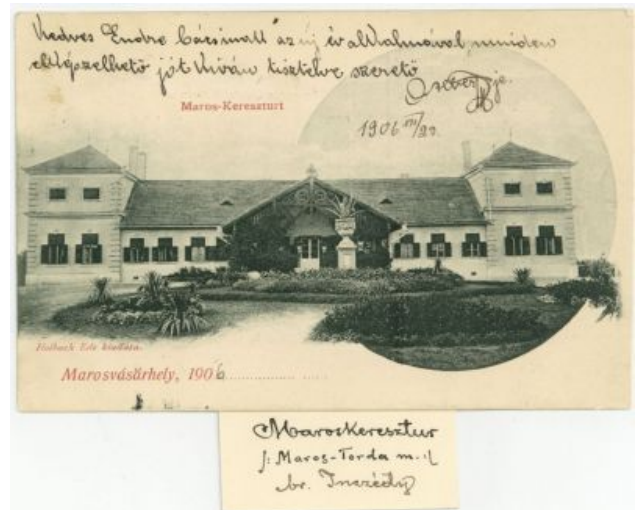 Kedves Endre bácsinak az új év alkalmával minden
elképzelhető jót kíván tisztelve szerető
Maros-Kereszturt
1906 VII/23.
Holbach Ede kiadása.
Marosvásárhely, 1906
Maroskeresztur
/: Maros-Torda m. :/
br. Inczédy